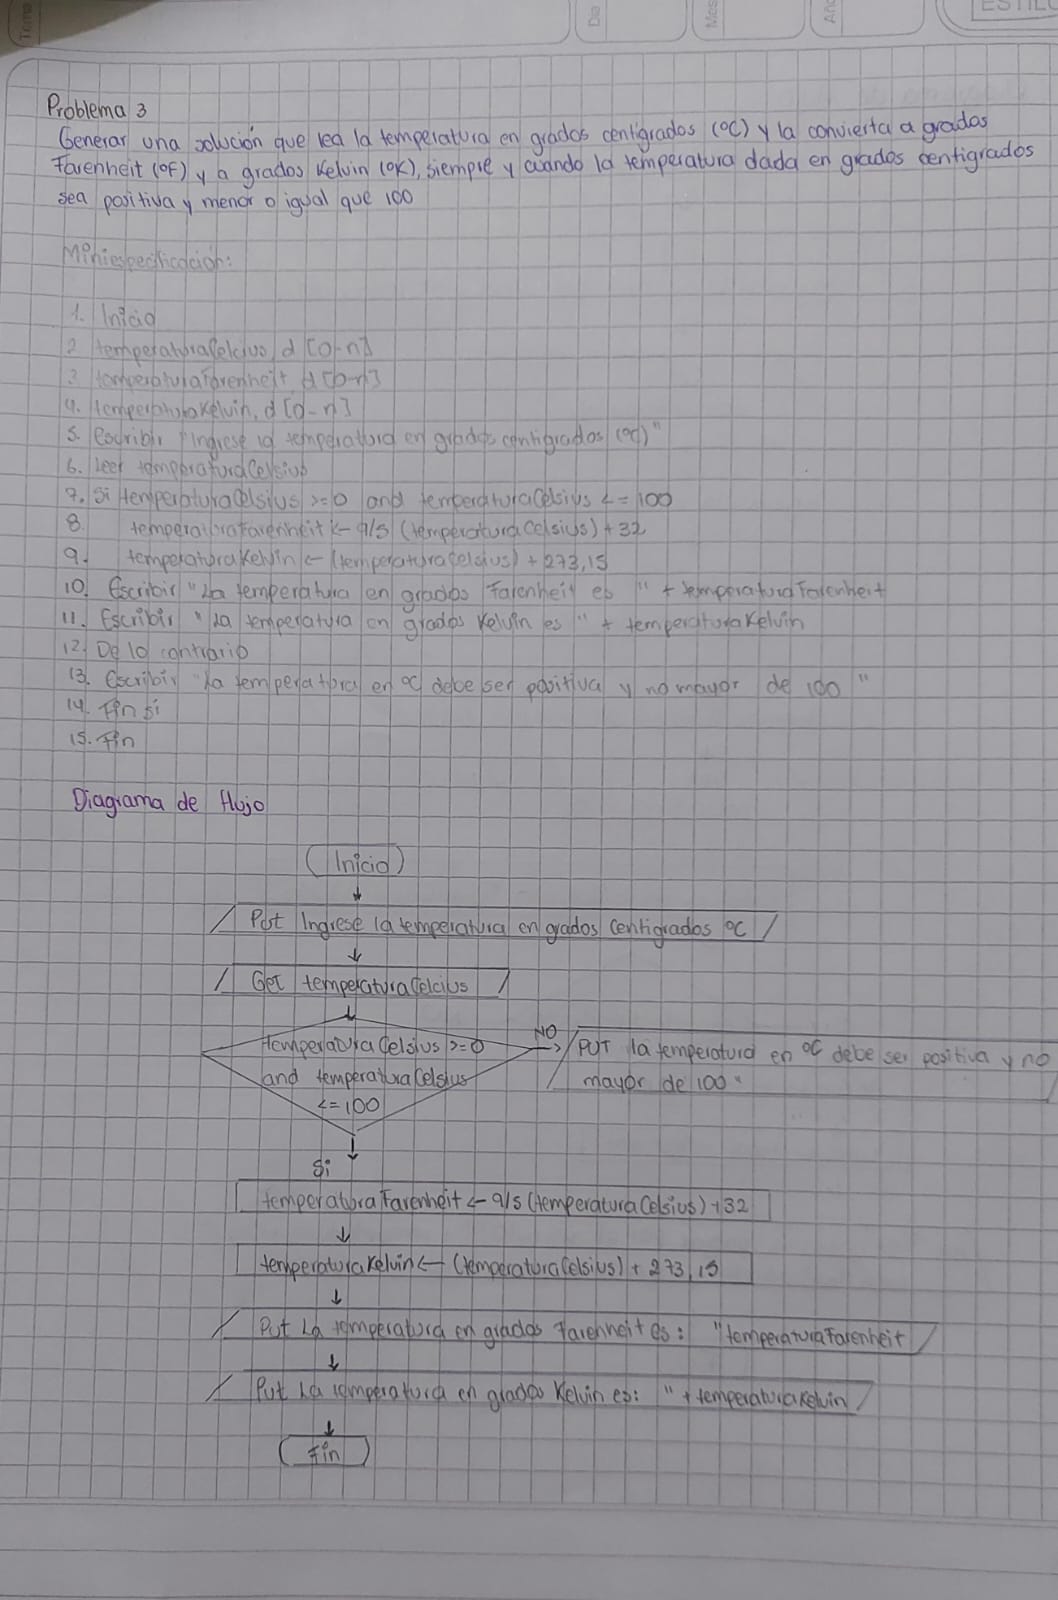 Tema
Dia
Mes
Añ
ESTILO
Problema 3
Generar una solución que lea la temperatura en grados centigrados (ºC) y la convierta a grados
Farenheit (ºF) y a grados Kelvin (ºK), siempre y cuando la temperatura dada en grados centigrados
sea positiva y menor o igual que 100
Miniespecificación:
1. Inicio
2 temperaturaCelcius, d [0-n]
3. temperaturaFarenheit, d [0-n]
4. temperaturaKelvin, d [0-n]
5. Escribir "Ingrese la temperatura en grados centigrados (ºC)"
6. Leer temperaturaCelsius
7. Si temperaturaCelsius >=0 and temperaturaCelsius <=100
8. temperaturaFarenheit <- 9/5 (temperaturaCelsius) + 32
9. temperaturaKelvin <- (temperaturaCelsius) + 273,15
10. Escribir "La temperatura en grados Farenheit es " + temperaturaFarenheit
11. Escribir "La temperatura en grados Kelvin es " + temperaturaKelvin
12. De lo contrario
13. Escribir "La temperatura en ºC debe ser positiva y no mayor de 100 "
14. Fin si
15. Fin
Diagrama de flujo
Inicio
Put Ingrese la temperatura en grados Centigrados ºC
Get temperaturaCelcius
temperaturaCelsius >=0
and temperaturaCelsius
<=100
NO
PUT la temperatura en ºC debe ser positiva y no
mayor de 100"
Si
temperaturaFarenheit <- 9/5 (temperaturaCelsius) +32
temperaturaKelvin <- (temperaturaCelsius) + 273,15
Put La temperatura en grados Farenheit es: "temperaturaFarenheit
Put La temperatura en grados Kelvin es: " + temperaturaKelvin
Fin